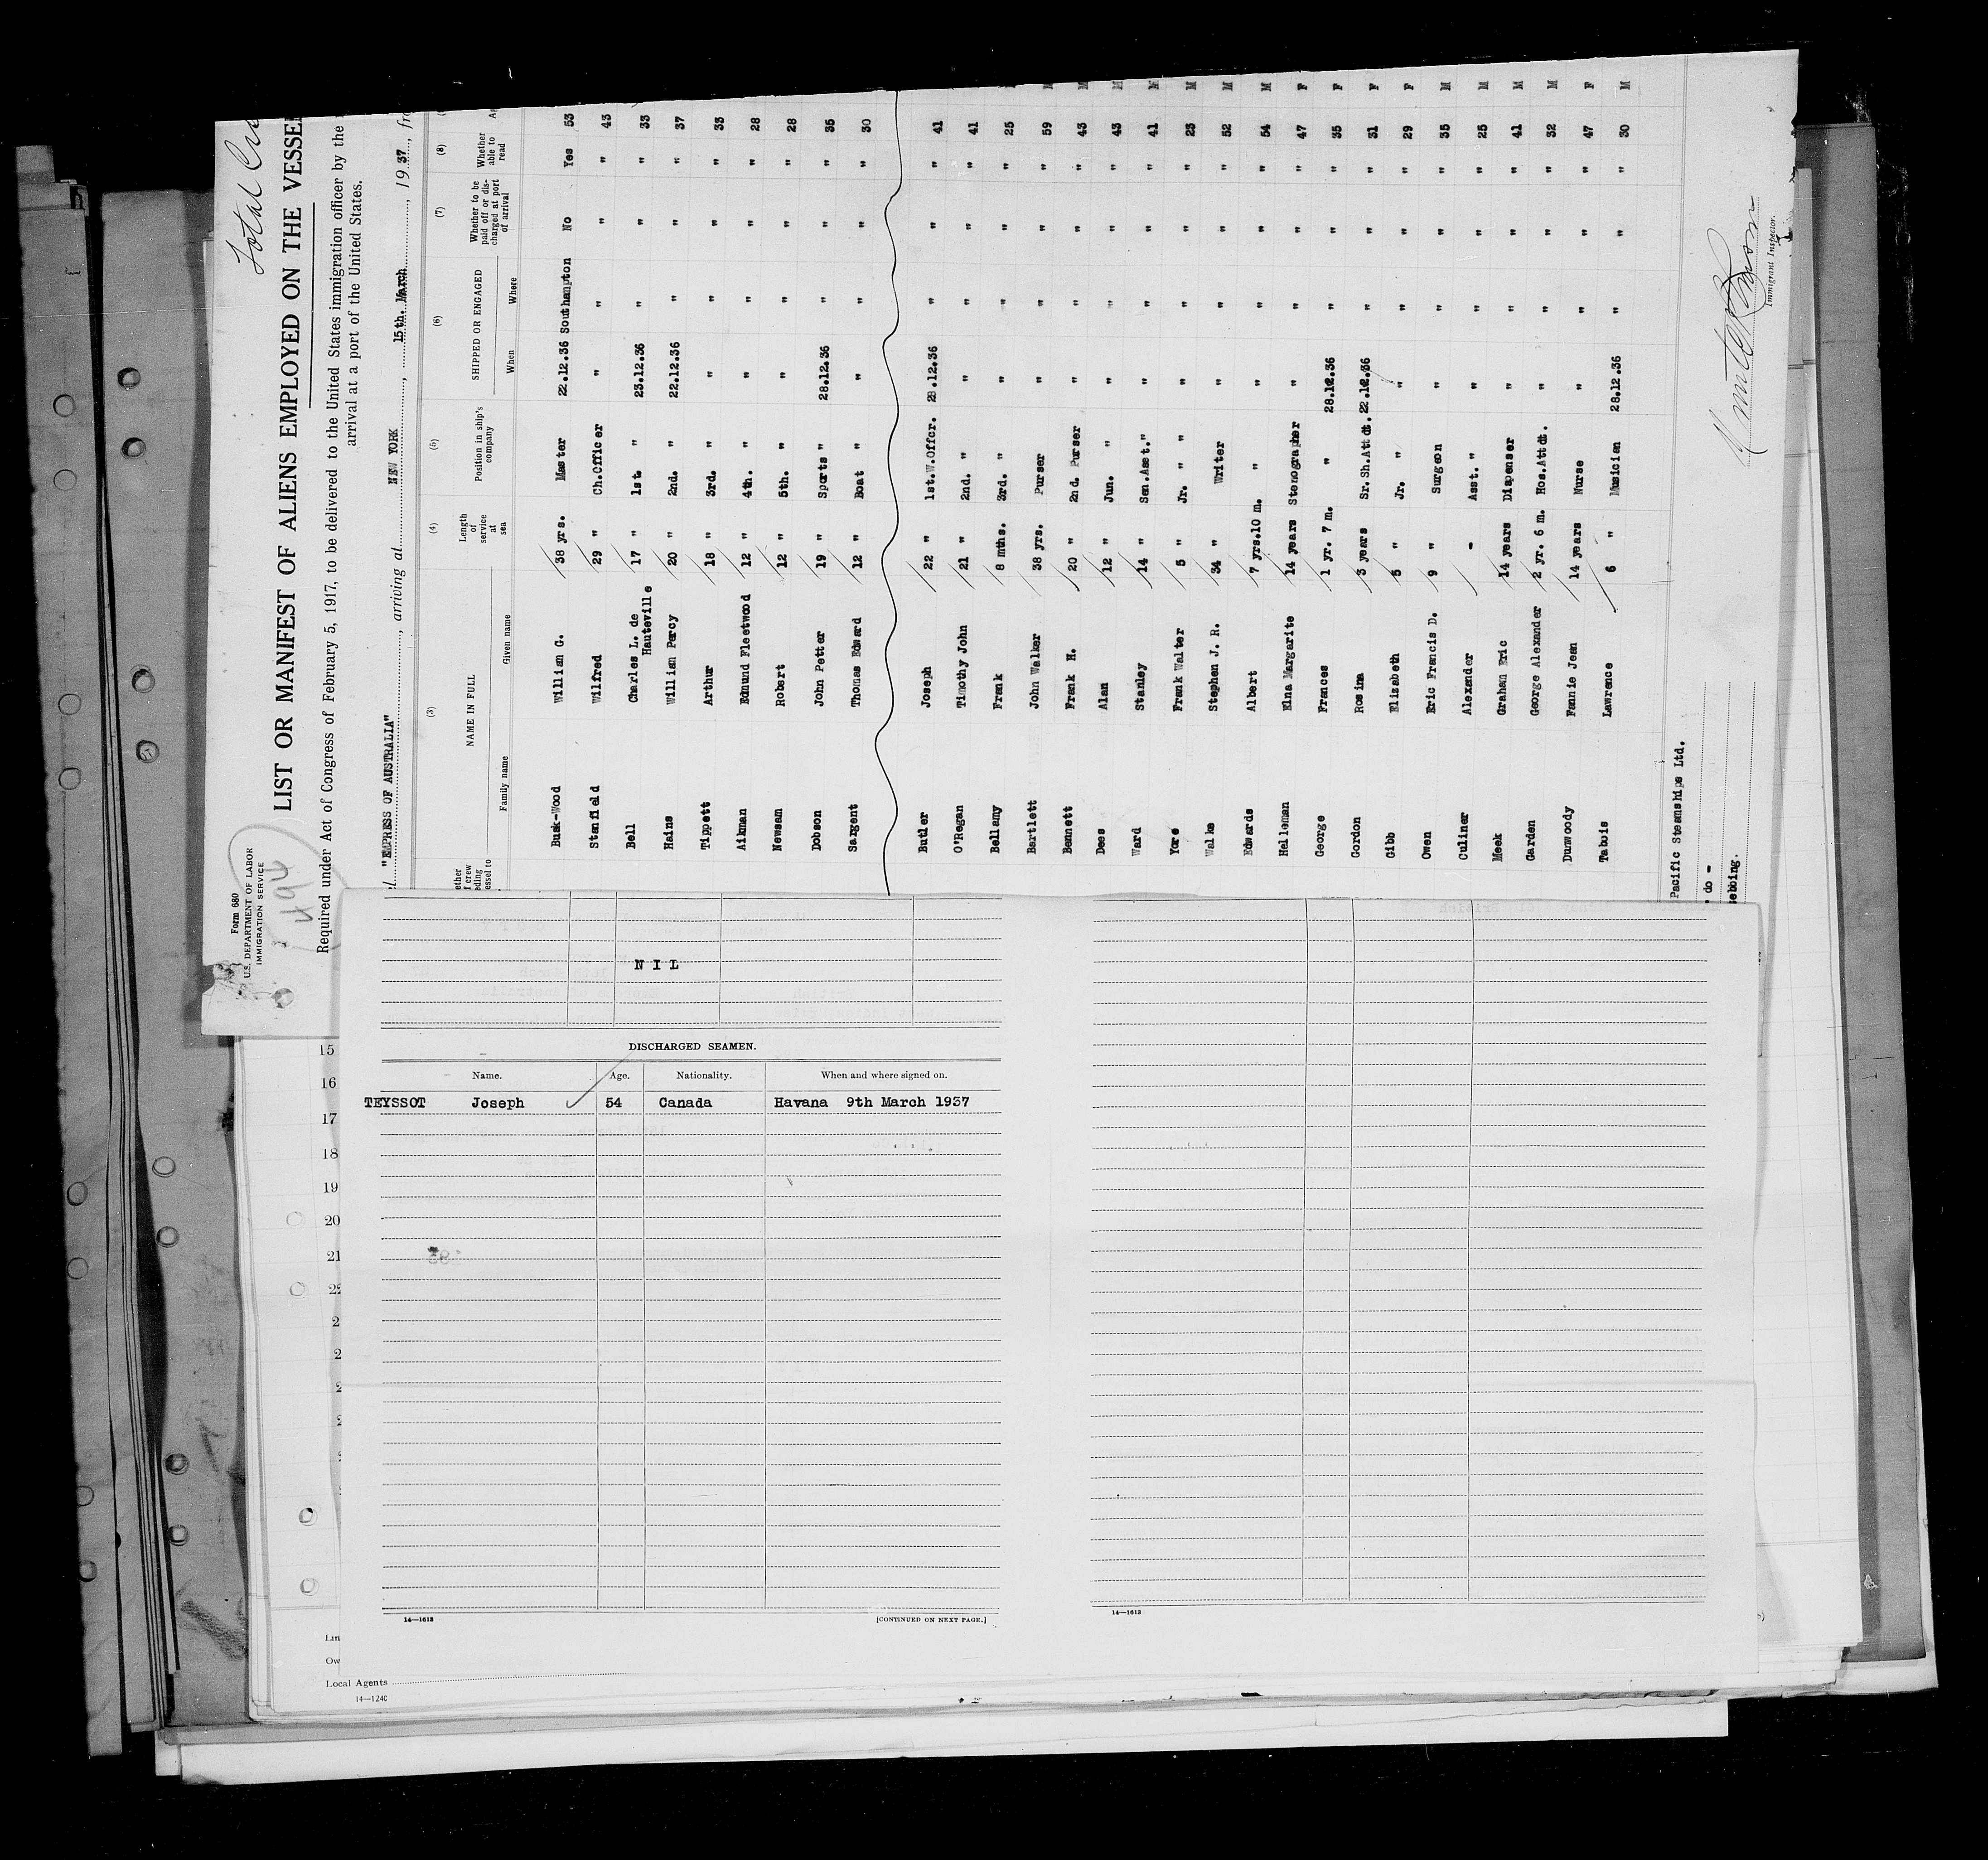 Form 680
U.S. DEPARTMENT OF LABOR
IMMIGRATION SERVICE
494
Total
LIST OR MANIFEST OF ALIENS EMPLOYED ON THE VESSEL
Required under Act of Congress of February 5, 1917, to be delivered to the United States immigration officer by the
arrival at a port of the United States.
"EMPRESS OF AUSTRALIA", arriving at NEW YORK, 15th. March, 1937, fro
(3) (4) (5) (6) (7) (8)
NAME IN FULL Length of service at sea Position in ship's company SHIPPED OR ENGAGED Whether to be paid off or discharged at port of arrival Whether able to read
Family name Given name When Where
Busk-Wood William G. 38 yrs. Master 22.12.36 Southampton No Yes 53
Stanfield Wilfred 29 " Ch.Officer " " " " 43
Bell Charles L. de Hauteville 17 " 1st. " 23.12.36 " " " 33
Hains William Percy 20 " 2nd. " 22.12.36 " " " 37
Tippett Arthur 18 " 3rd. " " " " " 33
Aikman Edmund Fleetwood 12 " 4th. " " " " " 28
Newsam Robert 12 " 5th. " " " " " 28
Dobson John Petter 19 " Sports " 28.12.36 " " " 35
Sargent Thomas Edward 12 " Boat " " " " " 30
Butler Joseph 22 " 1st.W.Offcr. 23.12.36 " " " 41
O'Regan Timothy John 21 " 2nd. " " " " " 41
Bellamy Frank 8 mths. 3rd. " " " " " 25
Bartlett John Walker 38 yrs. Purser " " " " 59 M
Bennett Frank H. 20 " 2nd. Purser " " " " 43 M
Dees Alan 12 " Jun. " " " " " 43 M
Ward Stanley 14 " Sen.Asst." " " " " 41 M
Yore Frank Walter 5 " Jr. " " " " " " 23 M
Walke Stephen J. R. 34 " Writer " " " " 52 M
Edwards Albert 7 yrs.10 m. " " " " " 54 M
Halleman Elna Margarite 14 years Stenographer " " " " 47 F
George Frances 1 yr. 7 m. " 28.12.36 " " " 35 F
Gordon Rosina 3 years Sr.Sh.Attdt. 22.12.36 " " " 31 F
Gibb Elizabeth 5 " Jr. " " " " " 29 F
Owen Eric Francis D. 9 " Surgeon " " " " 35 M
Culiner Alexander - Asst. " " " " " 25 M
Meek Graham Eric 14 years Dispenser " " " " 41 M
Garden George Alexander 2 yr. 6 m. Hos.Attdt. " " " " 32 M
Dunwoody Fannie Jean 14 years Nurse " " " " 47 F
Tabois Lawrence 6 " Musician 28.12.36 " " " 30 M
Pacific Steamships Ltd.
do -
ebbing.
Immigrant Inspector.
NIL
DISCHARGED SEAMEN.
Name. Age. Nationality. When and where signed on.
TEYSSOT Joseph 54 Canada Havana 9th March 1937
15
16
17
18
19
20
21
14—1613 [CONTINUED ON NEXT PAGE.]
14—1613
Local Agents
14—1240